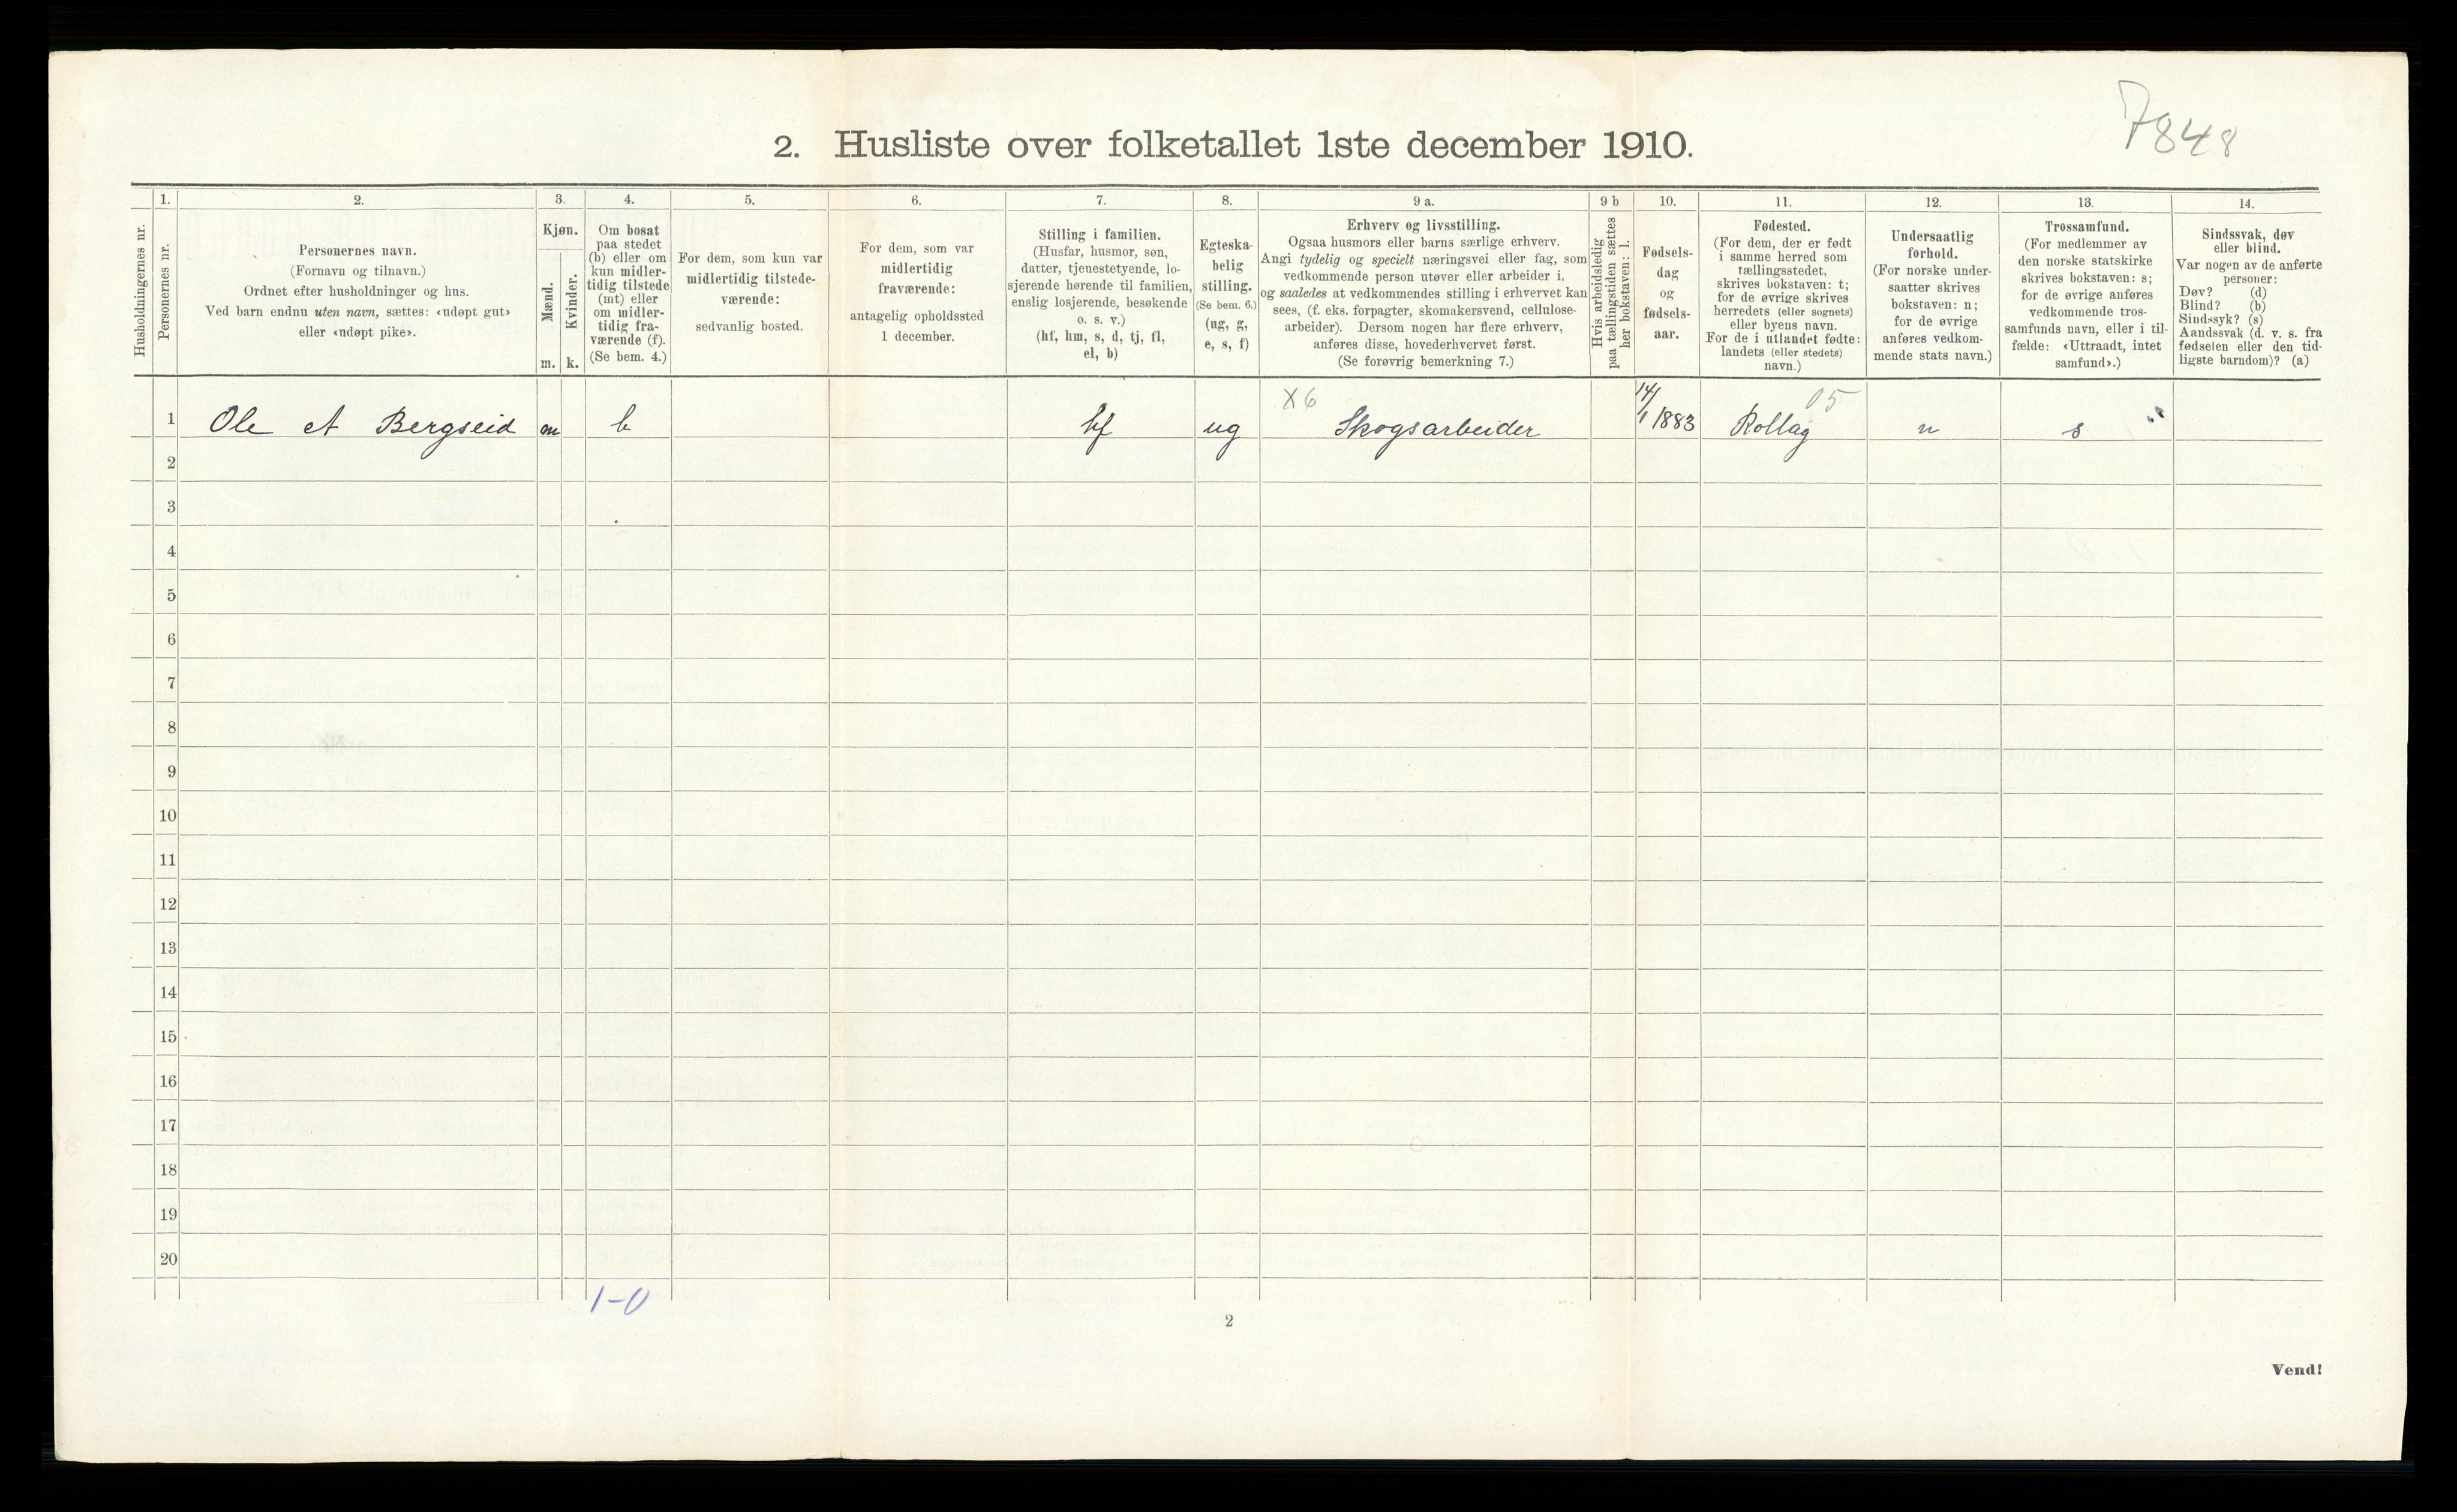 7848
2. Husliste over folketallet 1ste december 1910.
Husholdningernes nr.
1.
Personernes nr.
2.
Personernes navn.
(Fornavn og tilnavn.)
Ordnet efter husholdninger og hus.
Ved barn endnu uten navn, sættes: «udøpt gut»
eller «udøpt pike».
3.
Kjøn.
Mænd.
m.
Kvinder.
k.
4.
Om bosat
paa stedet
(b) eller om
kun midler-
tidig tilstede
(mt) eller
om midler-
tidig fra-
værende (f).
(Se bem. 4.)
5.
For dem, som kun var
midlertidig tilstede-
værende:
sedvanlig bosted.
6.
For dem, som var
midlertidig
fraværende:
antagelig opholdssted
1 december.
7.
Stilling i familien.
(Husfar, husmor, søn,
datter, tjenestetyende, lo-
sjerende hørende til familien,
enslig losjerende, besøkende
o. s. v.)
(hf, hm, s, d, tj, fl,
el, b)
8.
Egteska-
belig
stilling.
(Se bem. 6.)
(ug, g,
e, s, f)
9 a.
Erhverv og livsstilling.
Ogsaa husmors eller barns særlige erhverv.
Angi tydelig og specielt næringsvei eller fag, som
vedkommende person utøver eller arbeider i,
og saaledes at vedkommendes stilling i erhvervet kan
sees, (f. eks. forpagter, skomakersvend, cellulose-
arbeider). Dersom nogen har flere erhverv,
anføres disse, hovederhvervet først.
(Se forøvrig bemerkning 7.)
9 b
Hvis arbeidsledig
paa tællingstiden sættes
her bokstaven: l.
10.
Fødsels-
dag
og
fødsels-
aar.
11.
Fødested.
(For dem, der er født
i samme herred som
tællingsstedet,
skrives bokstaven: t;
for de øvrige skrives
herredets (eller sognets)
eller byens navn.
For de i utlandet fødte:
landets (eller stedets)
navn.)
12.
Undersaatlig
forhold.
(For norske under-
saatter skrives
bokstaven: n;
for de øvrige
anføres vedkom-
mende stats navn.)
13.
Trossamfund.
(For medlemmer av
den norske statskirke
skrives bokstaven: s;
for de øvrige anføres
vedkommende tros-
samfunds navn, eller i til-
fælde: «Uttraadt, intet
samfund».)
14.
Sindssvak, døv
eller blind.
Var nogen av de anførte
personer:
Døv? (d)
Blind? (b)
Sindssyk? (s)
Aandssvak (d. v. s. fra
fødselen eller den tid-
ligste barndom)? (a)
X6 05
1 Ole A Bergseid m b hf ug Skogsarbeider 14/1 1883 Rollag n s
2
3
4
5
6
7
8
9
10
11
12
13
14
15
16
17
18
19
20
1-0
2
Vend!